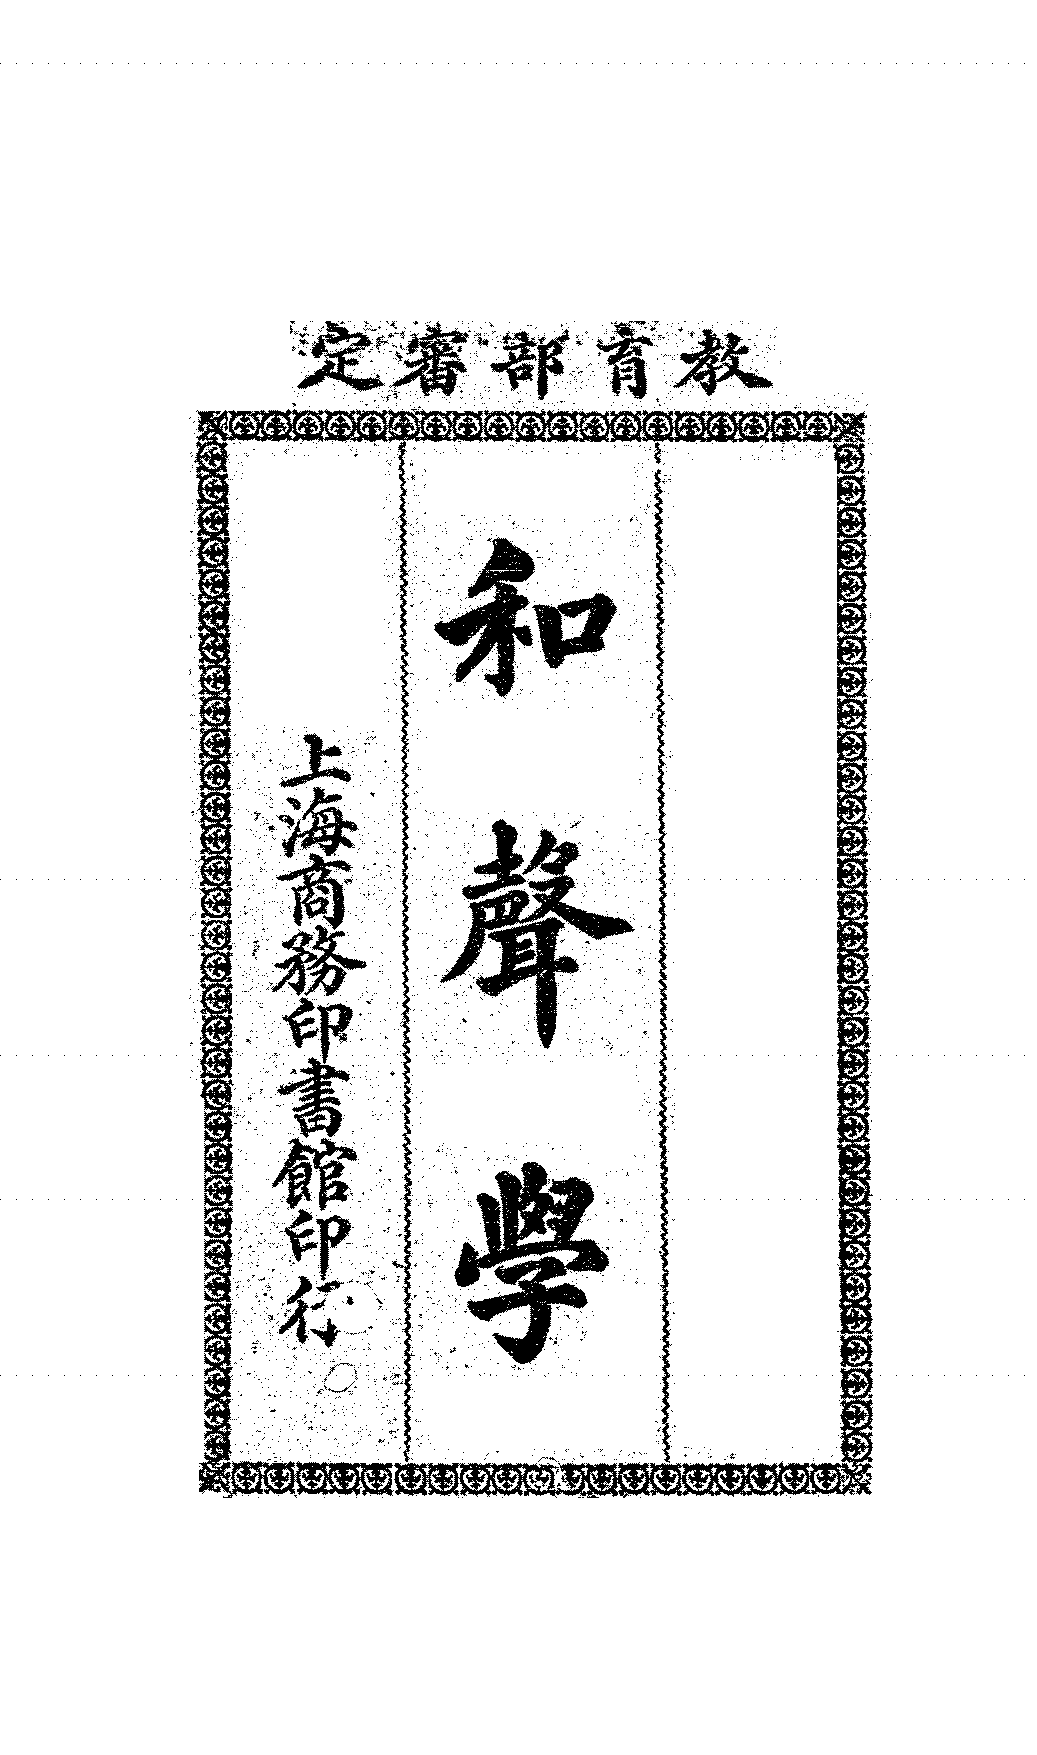 教育部審定
和聲學
上海商務印書館印行